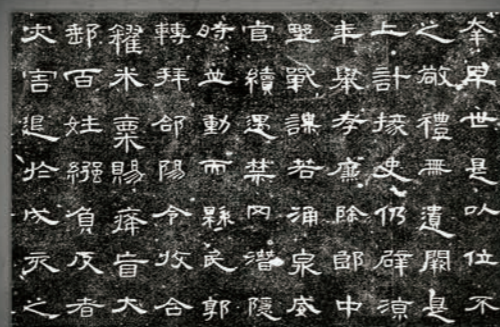 幸早世是以位不
之敬禮無遺闕是
上計掾史仍辟涼
年舉孝廉除郎中
壄戰謀若涌泉威
官續遇禁冈潛隱
時並動而縣民郭
轉拜郃陽令收合
糴米粟賜癃盲大
郵百姓繈負反者
災害退於戌亥之